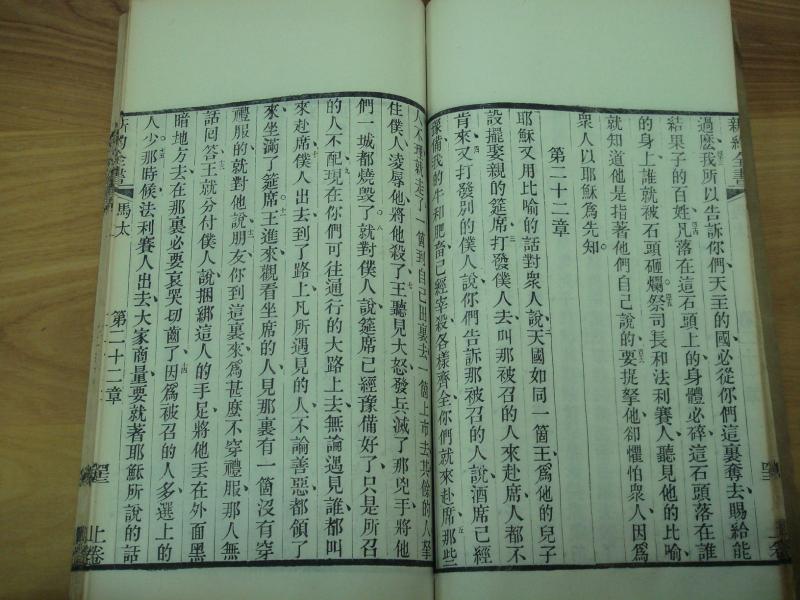 新約全書
過麽我所以告訴你們天主的國必從你們這裏奪去、賜給能
結果子的百姓、凡落在這石頭上的身體必碎、這石頭落在誰
的身上、誰就被石頭砸爛、祭司長和法利賽人聽見他的比喻、
就知道他是指著他們自己說的、要捉拏他、卻懼怕衆人、因爲
衆人以耶穌爲先知。
第二十二章
耶穌又用比喻的話對衆人說、天國如同一箇王、爲他的兒子
設擺娶親的筵席、打發僕人去、叫那被召的人來赴席、人都不
肯來、又打發別的僕人說、你們告訴那被召的人說、酒席已經
豫備、我的牛和肥畜已經宰殺、各樣齊全、你們就來赴席、那些
人不理就走了、一箇到自己田裏去、一箇上市去、其餘的人拏
住僕人、淩辱他、將他殺了、王聽見大怒、發兵滅了那兇手、將他
們一城都燒毀了、就對僕人說、筵席已經豫備好了、只是所召
的人不配、現在你們可往通行的大路上去、無論遇見誰都叫
來赴席、僕人出去、到了路上、凡所遇見的人、不論善惡都領了
來、坐滿了筵席、王進來觀看坐席的人、見那裏有一箇沒有穿
禮服的、就對他說、朋友、你到這裏來、爲甚麽不穿禮服、那人無
話回答、王就分付僕人說、捆綁這人的手足、將他丟在外面黑
暗地方去、在那裏必要哀哭切齒了、因爲被召的人多、選上的
人少、那時候法利賽人出去、大家商量、要就著耶穌所說的話
新約全書 馬太 第二十二章 上卷